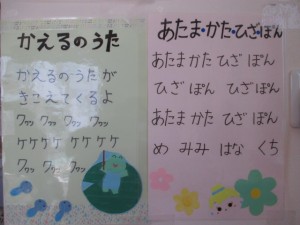 かえるのうた
かえるのうたが
きこえてくるよ
クワッ クワッ クワッ クワッ
ケケケケ ケケケケ
クワッ クワッ クワッ
あたま・かた・ひざ・ぽん
あたま かた ひざ ぽん
ひざ ぽん ひざ ぽん
あたま かた ひざ ぽん
め みみ はな くち